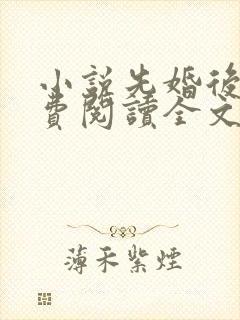 小說先婚後
費閱讀全文
薄禾紫煙